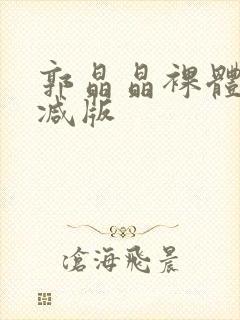 郭晶晶裸體
减版
滄海飛晨